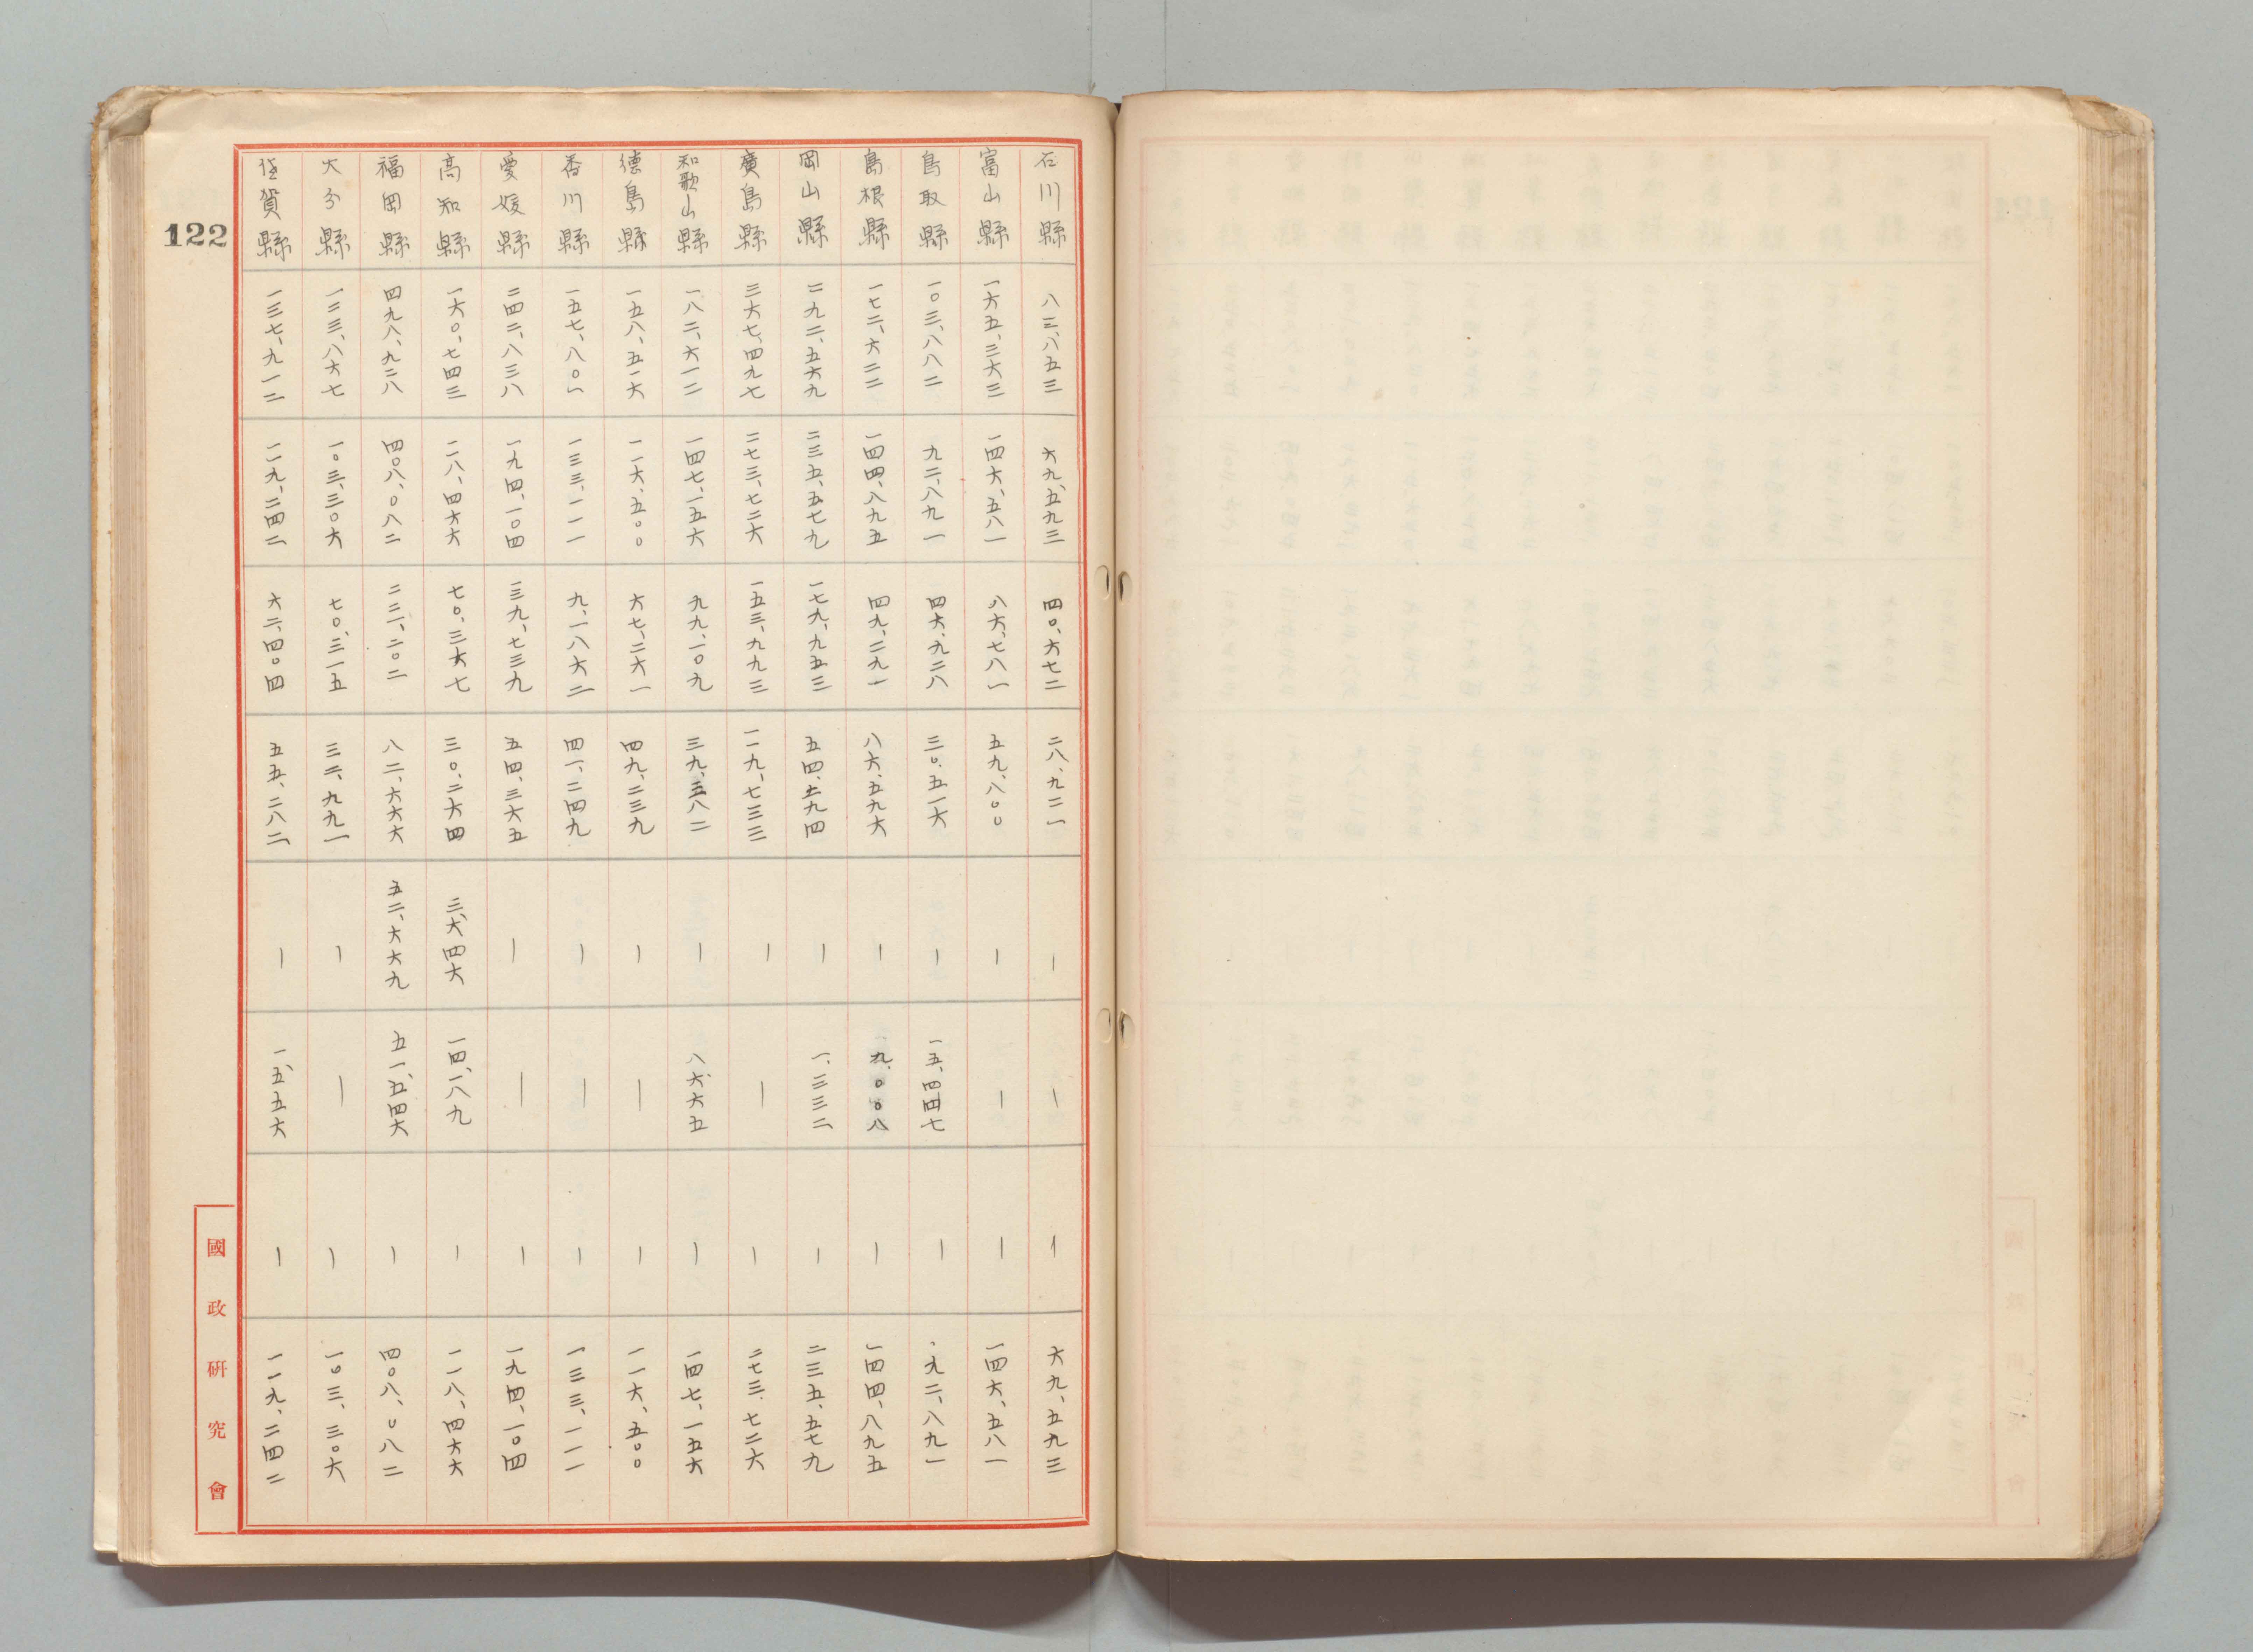 石川縣 八三、八五三 六九、五九三 四〇、六七二 二八、九二一 ― ― ― 六九、五九三
富山縣 一六五、三六三 一四六、五八一 八六、七八一 五九、八〇〇 ― ― ― 一四六、五八一
鳥取縣 一〇三、八八二 九二、八九一 四六、九二八 三〇、五一六 ― 一五、四四七 ― 九二、八九一
島根縣 一七二、六二二 一四四、八九五 四九、二九一 八六、五九六 ― 九、〇〇八 ― 一四四、八九五
岡山縣 二九二、五六九 二三五、五七九 一七九、九五三 五四、二九四 ― 一、三三二 ― 二三五、五七九
廣島縣 三六七、四九七 二七三、七二六 一五三、九九三 一一九、七三三 ― ― ― 二七三、七二六
和歌山縣 一八二、六一二 一四七、一五六 九九、一〇九 三九、三八二 ― 八、六六五 ― 一四七、一五六
德島縣 一五八、五一六 一一六、五〇〇 六七、二六一 四九、二三九 ― ― ― 一一六、五〇〇
香川縣 一五七、八〇一 一三三、一一一 九一、八六二 四一、二四九 ― ― ― 一三三、一一一
愛媛縣 二四二、八三八 一九四、一〇四 三九、七三九 五四、三六五 ― ― ― 一九四、一〇四
高知縣 一六〇、七四三 一一八、四六六 七〇、三六七 三〇、二六四 三、六四六 一四、一八九 ― 一一八、四六六
福岡縣 四九八、九二八 四〇八、〇八二 二二一、二〇二 八二、六六六 五二、六六九 五一、五四六 ― 四〇八、〇八二
大分縣 一二三、八六七 一〇三、三〇六 七〇、三一五 三二、九九一 ― ― ― 一〇三、三〇六
佐賀縣 一三七、九一二 一一九、二四二 六二、四〇四 五五、二八二 ― 一、五五六 ― 一一九、二四二
122
國政研究會